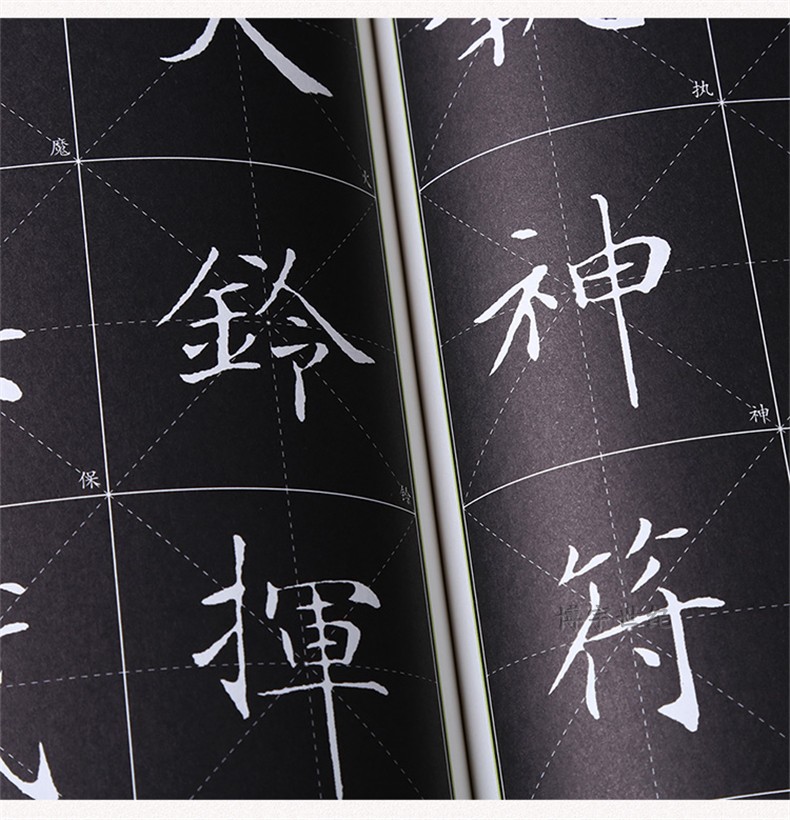 神符
执
神
鈴揮
火
魔
保